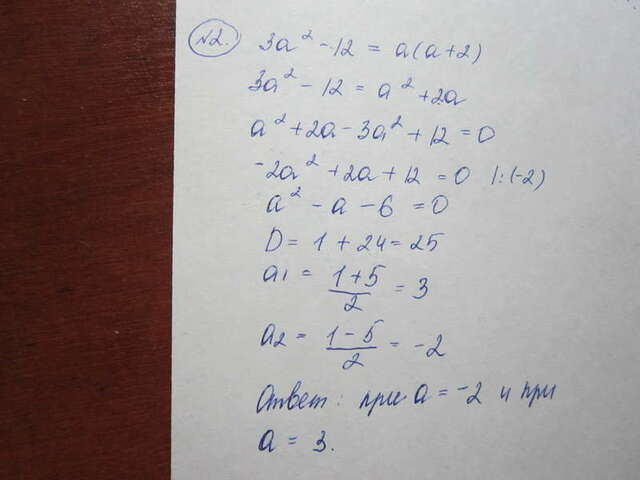 №2.
3a² - 12 = a(a+2)
3a² - 12 = a² + 2a
a² + 2a - 3a² + 12 = 0
-2a² + 2a + 12 = 0 |:(-2)
a² - a - 6 = 0
D = 1 + 24 = 25
a₁ = (1+5)/2 = 3
a₂ = (1-5)/2 = -2
Ответ: при a = -2 и при
a = 3.